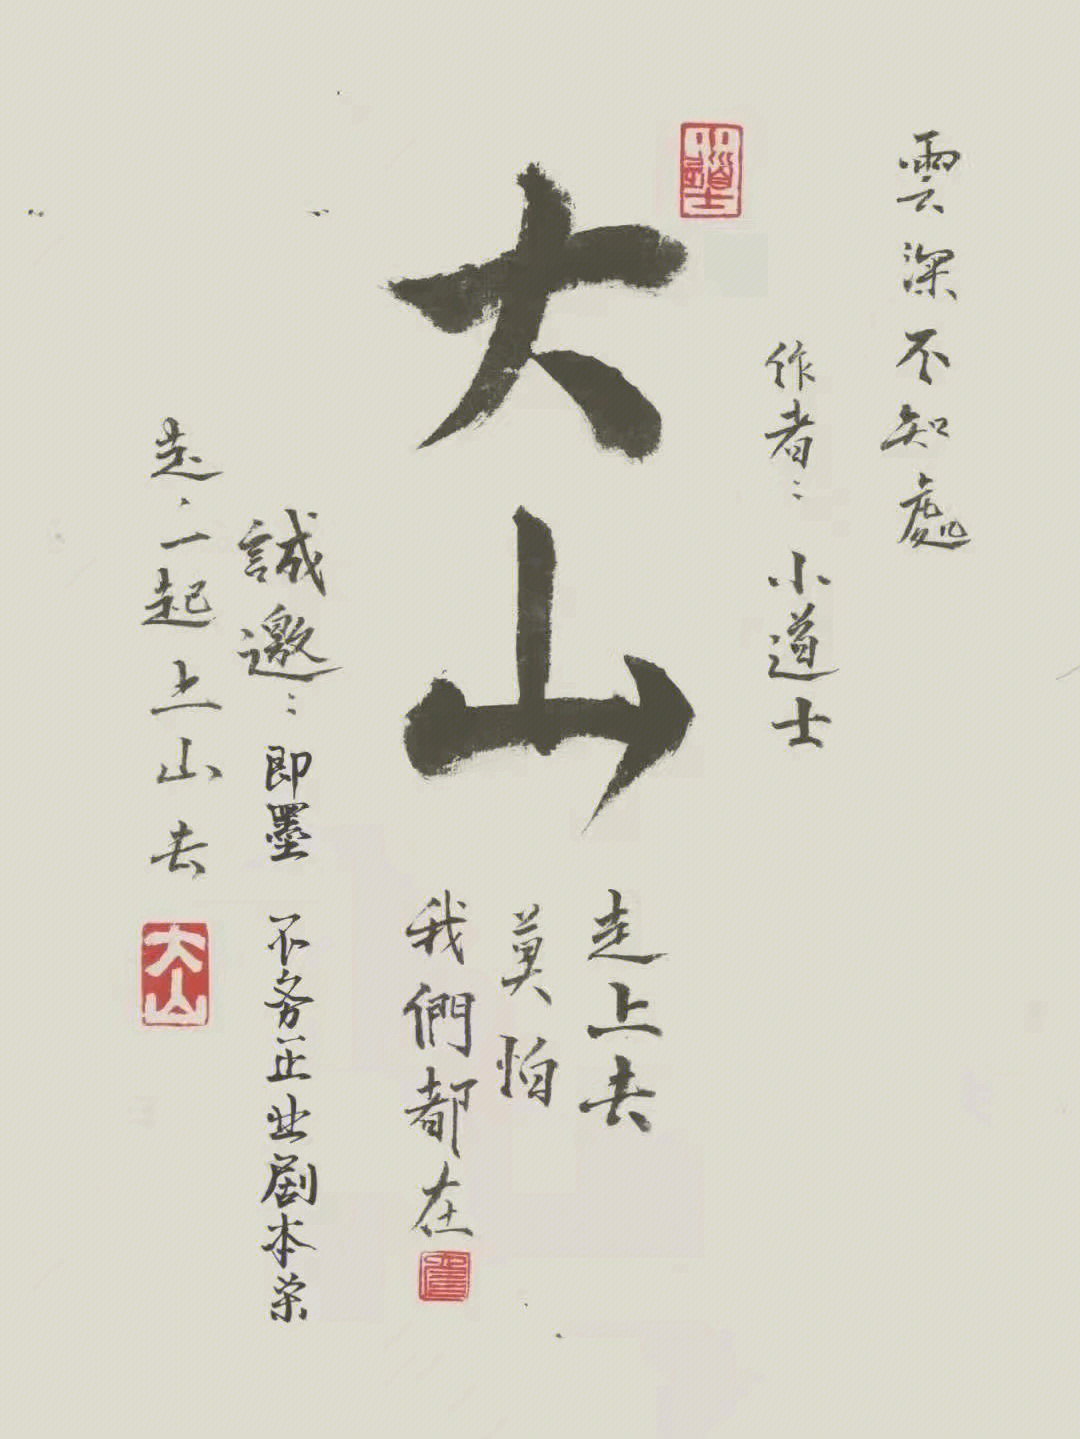 雲深不知處
作者：小道士
小道士
大山
走上去
莫怕
我們都在
誠邀：即墨 不务正业剧本荣
走、一起上山去
大山